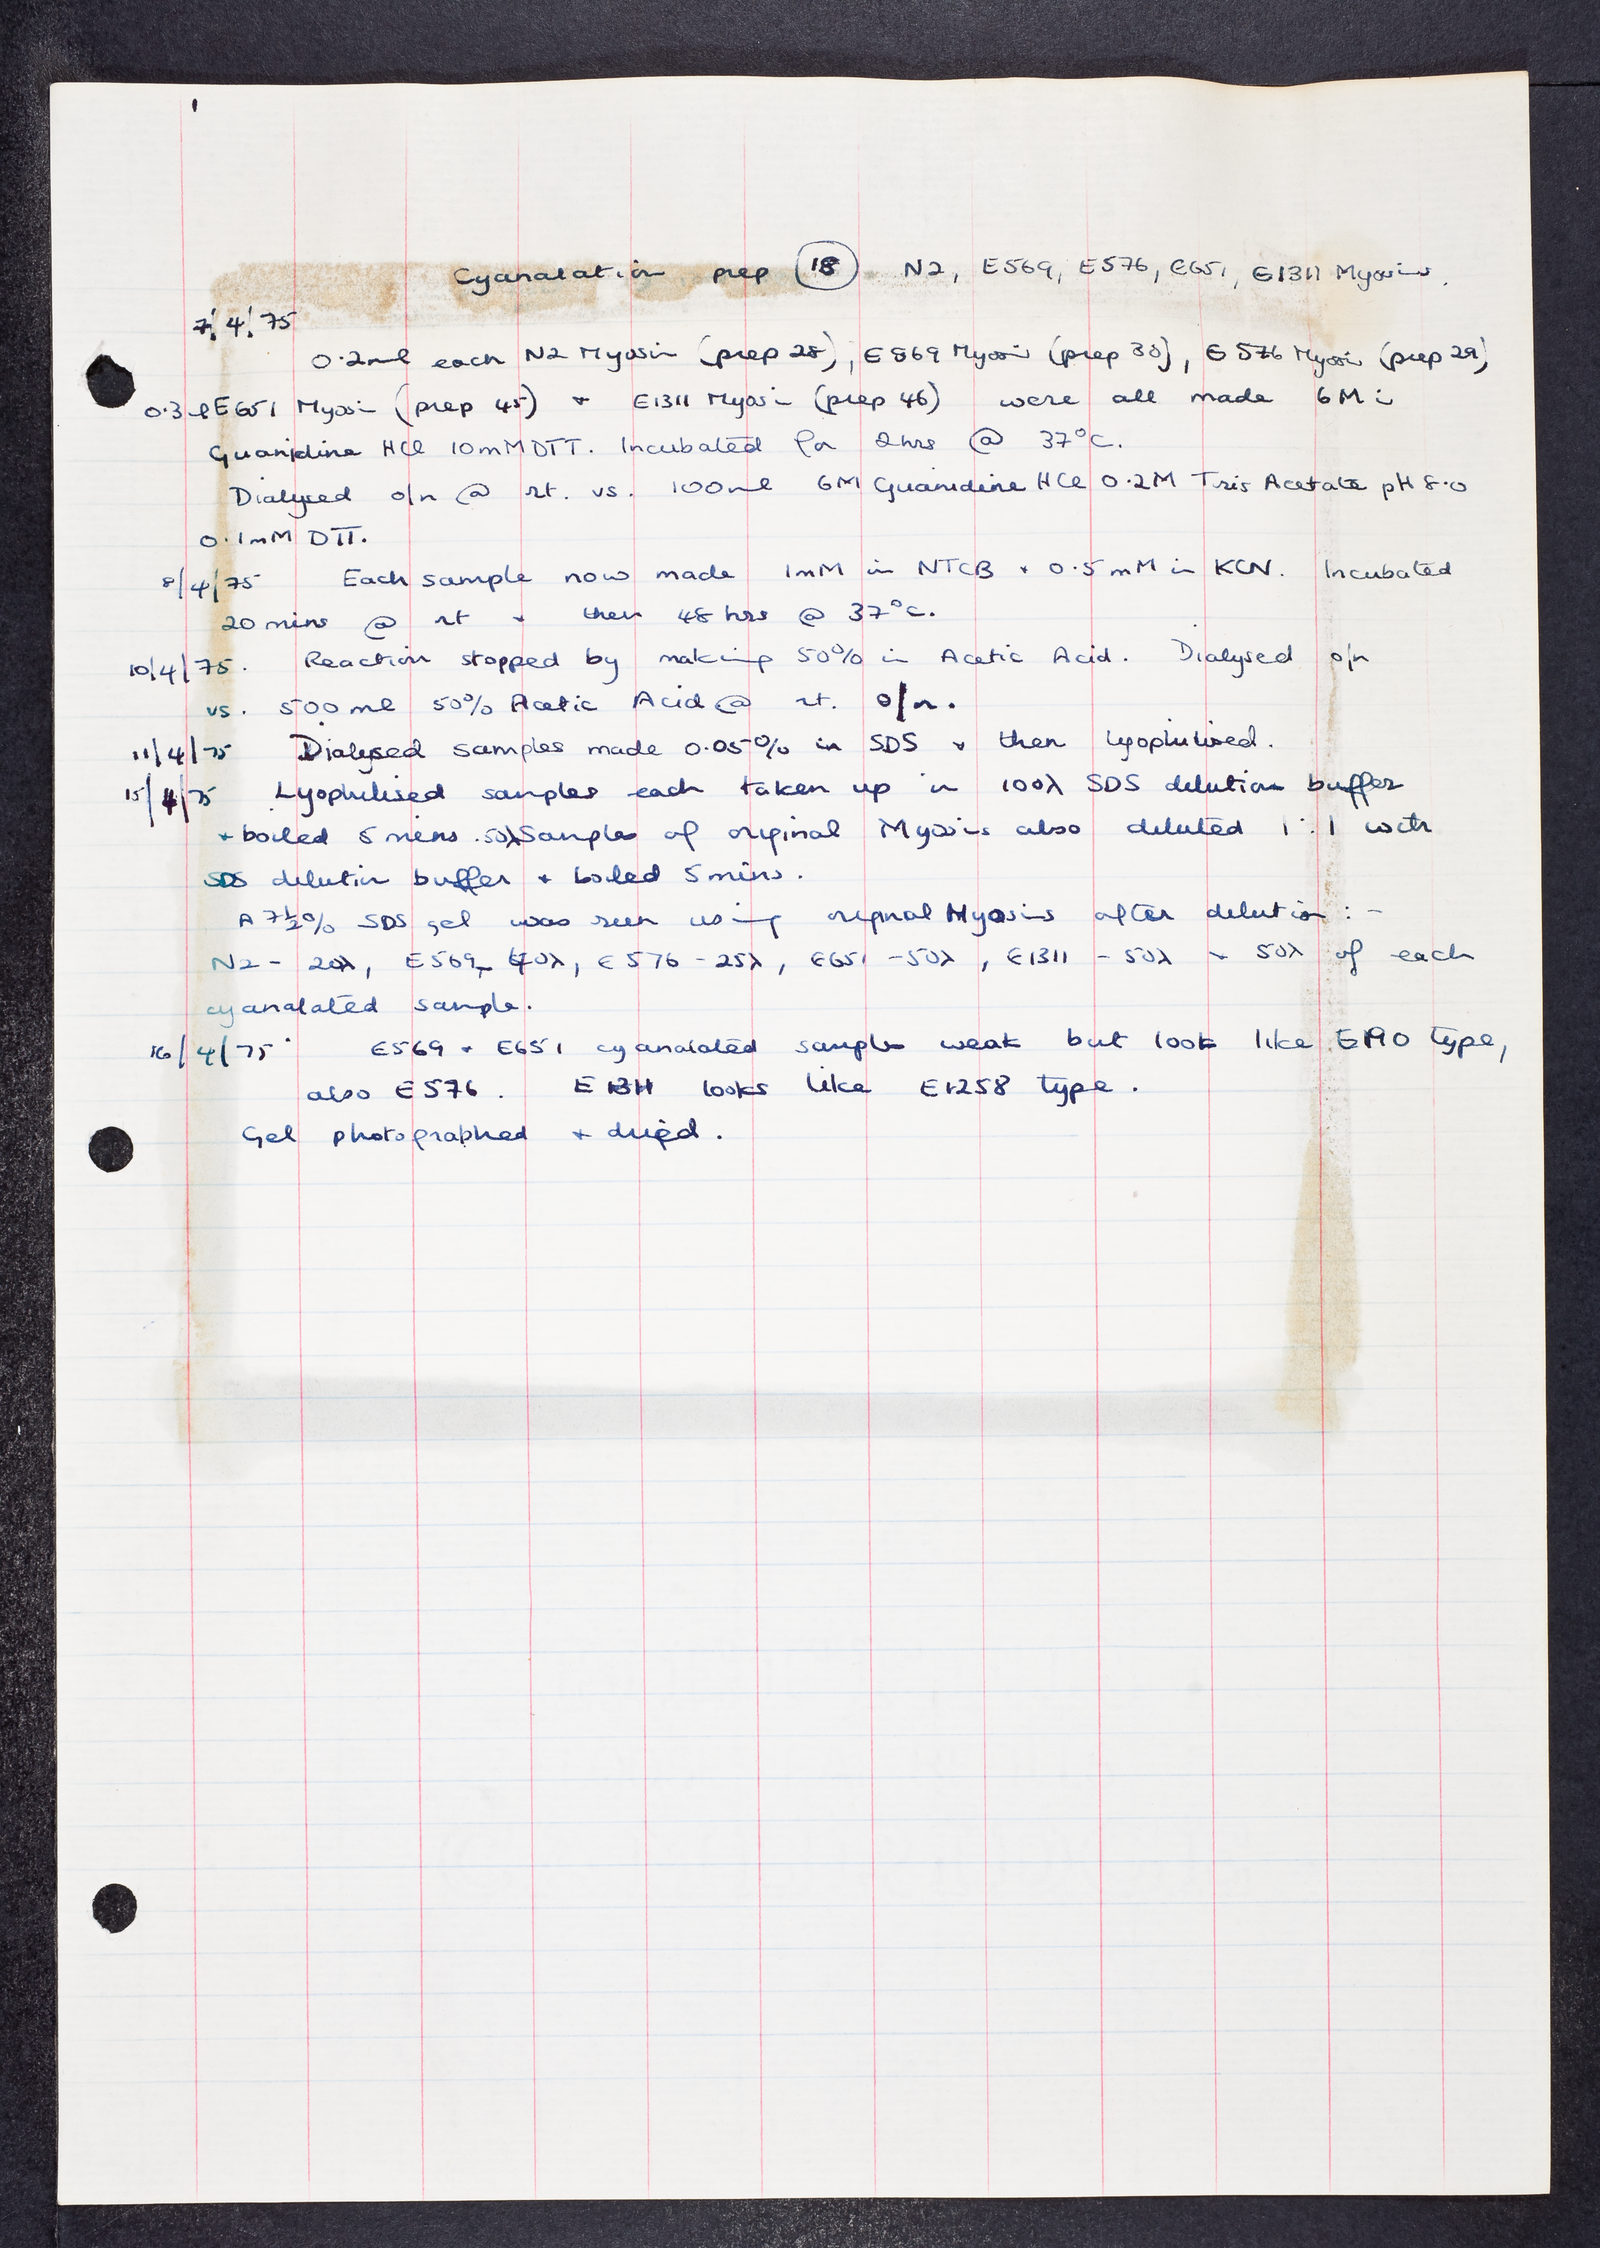 Cyanalation prep 18 N2, E569, E576, E651, E1311 Myosins.
7/4/75
0.2ml each N2 Myosin (prep 28), E569 Myosin (prep 30), E576 Myosin (prep 29)
0.3ml E651 Myosin (prep 45) + E1311 Myosin (prep 46) were all made 6M in
Guanidine HCl 10mM DTT. Incubated for 2hrs @ 37°C.
Dialysed o/n @ rt. vs. 100ml 6M Guanidine HCl 0.2M Tris Acetate pH 8.0
0.1mM DTT.
8/4/75 Each sample now made 1mM in NTCB + 0.5mM in KCN. Incubated
20mins @ rt + then 48hrs @ 37°C.
10/4/75. Reaction stopped by making 50% in Acetic Acid. Dialysed o/n
vs. 500ml 50% Acetic Acid @ rt. o/n.
11/4/75 Dialysed samples made 0.05% in SDS + then lyophilised.
15/4/75 Lyophilised samples each taken up in 100λ SDS dilution buffer
+ boiled 5mins. 50λ Samples of original Myosins also diluted 1:1 with
SDS dilution buffer + boiled 5mins.
A 7½% SDS gel was run using original Myosins after dilution:-
N2- 20λ, E569- λ, E576 -25λ, E651 -50λ, E1311 - 50λ + 50λ of each
cyanalated sample.
16/4/75 E569 + E651 cyanalated samples weak but look like E190 type,
also E576. E1311 looks like E1258 type.
Gel photographed + dried.